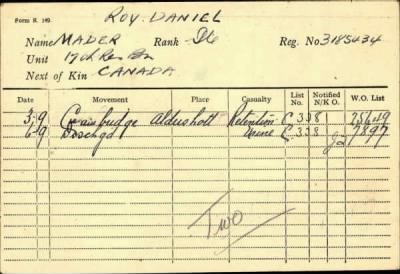 Form B. 149.
ROY. DANIEL
Name MADER Rank Pte Reg. No 3185434
Unit 17th Res Bn
Next of Kin CANADA
Date Movement Place Casualty List No. Notified N/K O. W.O. List
3/9 Cambridge Aldershott Retention C.338 25649
6/9 Dischgd C.338 7897
Two